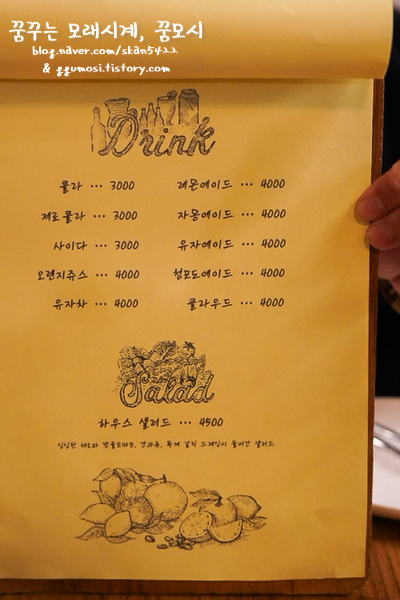 꿈꾸는 모래시계, 꿈모시
blog.naver.com/skan5422
& ggumosi.tistory.com
Drink
콜라 ... 3000 레몬에이드 ... 4000
제로콜라 ... 3000 자몽에이드 ... 4000
사이다 ... 3000 유자에이드 ... 4000
오렌지쥬스 ... 4000 청포도에이드 ... 4000
유자차 ... 4000 클라우드 ... 4000
Salad
하우스 샐러드 ... 4500
싱싱한 채소와 방울토마토, 견과류, 수제 갈릭 드레싱이 들어간 샐러드